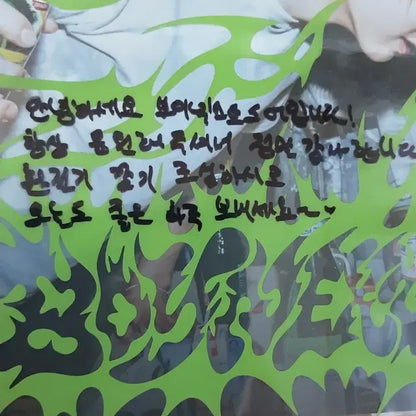 안녕하세요 보이넥스트도어입니다!
항상 응원해주셔서 정말 감사합니다
환절기 감기 조심하시고
오늘도 좋은 하루 보내세요~♥